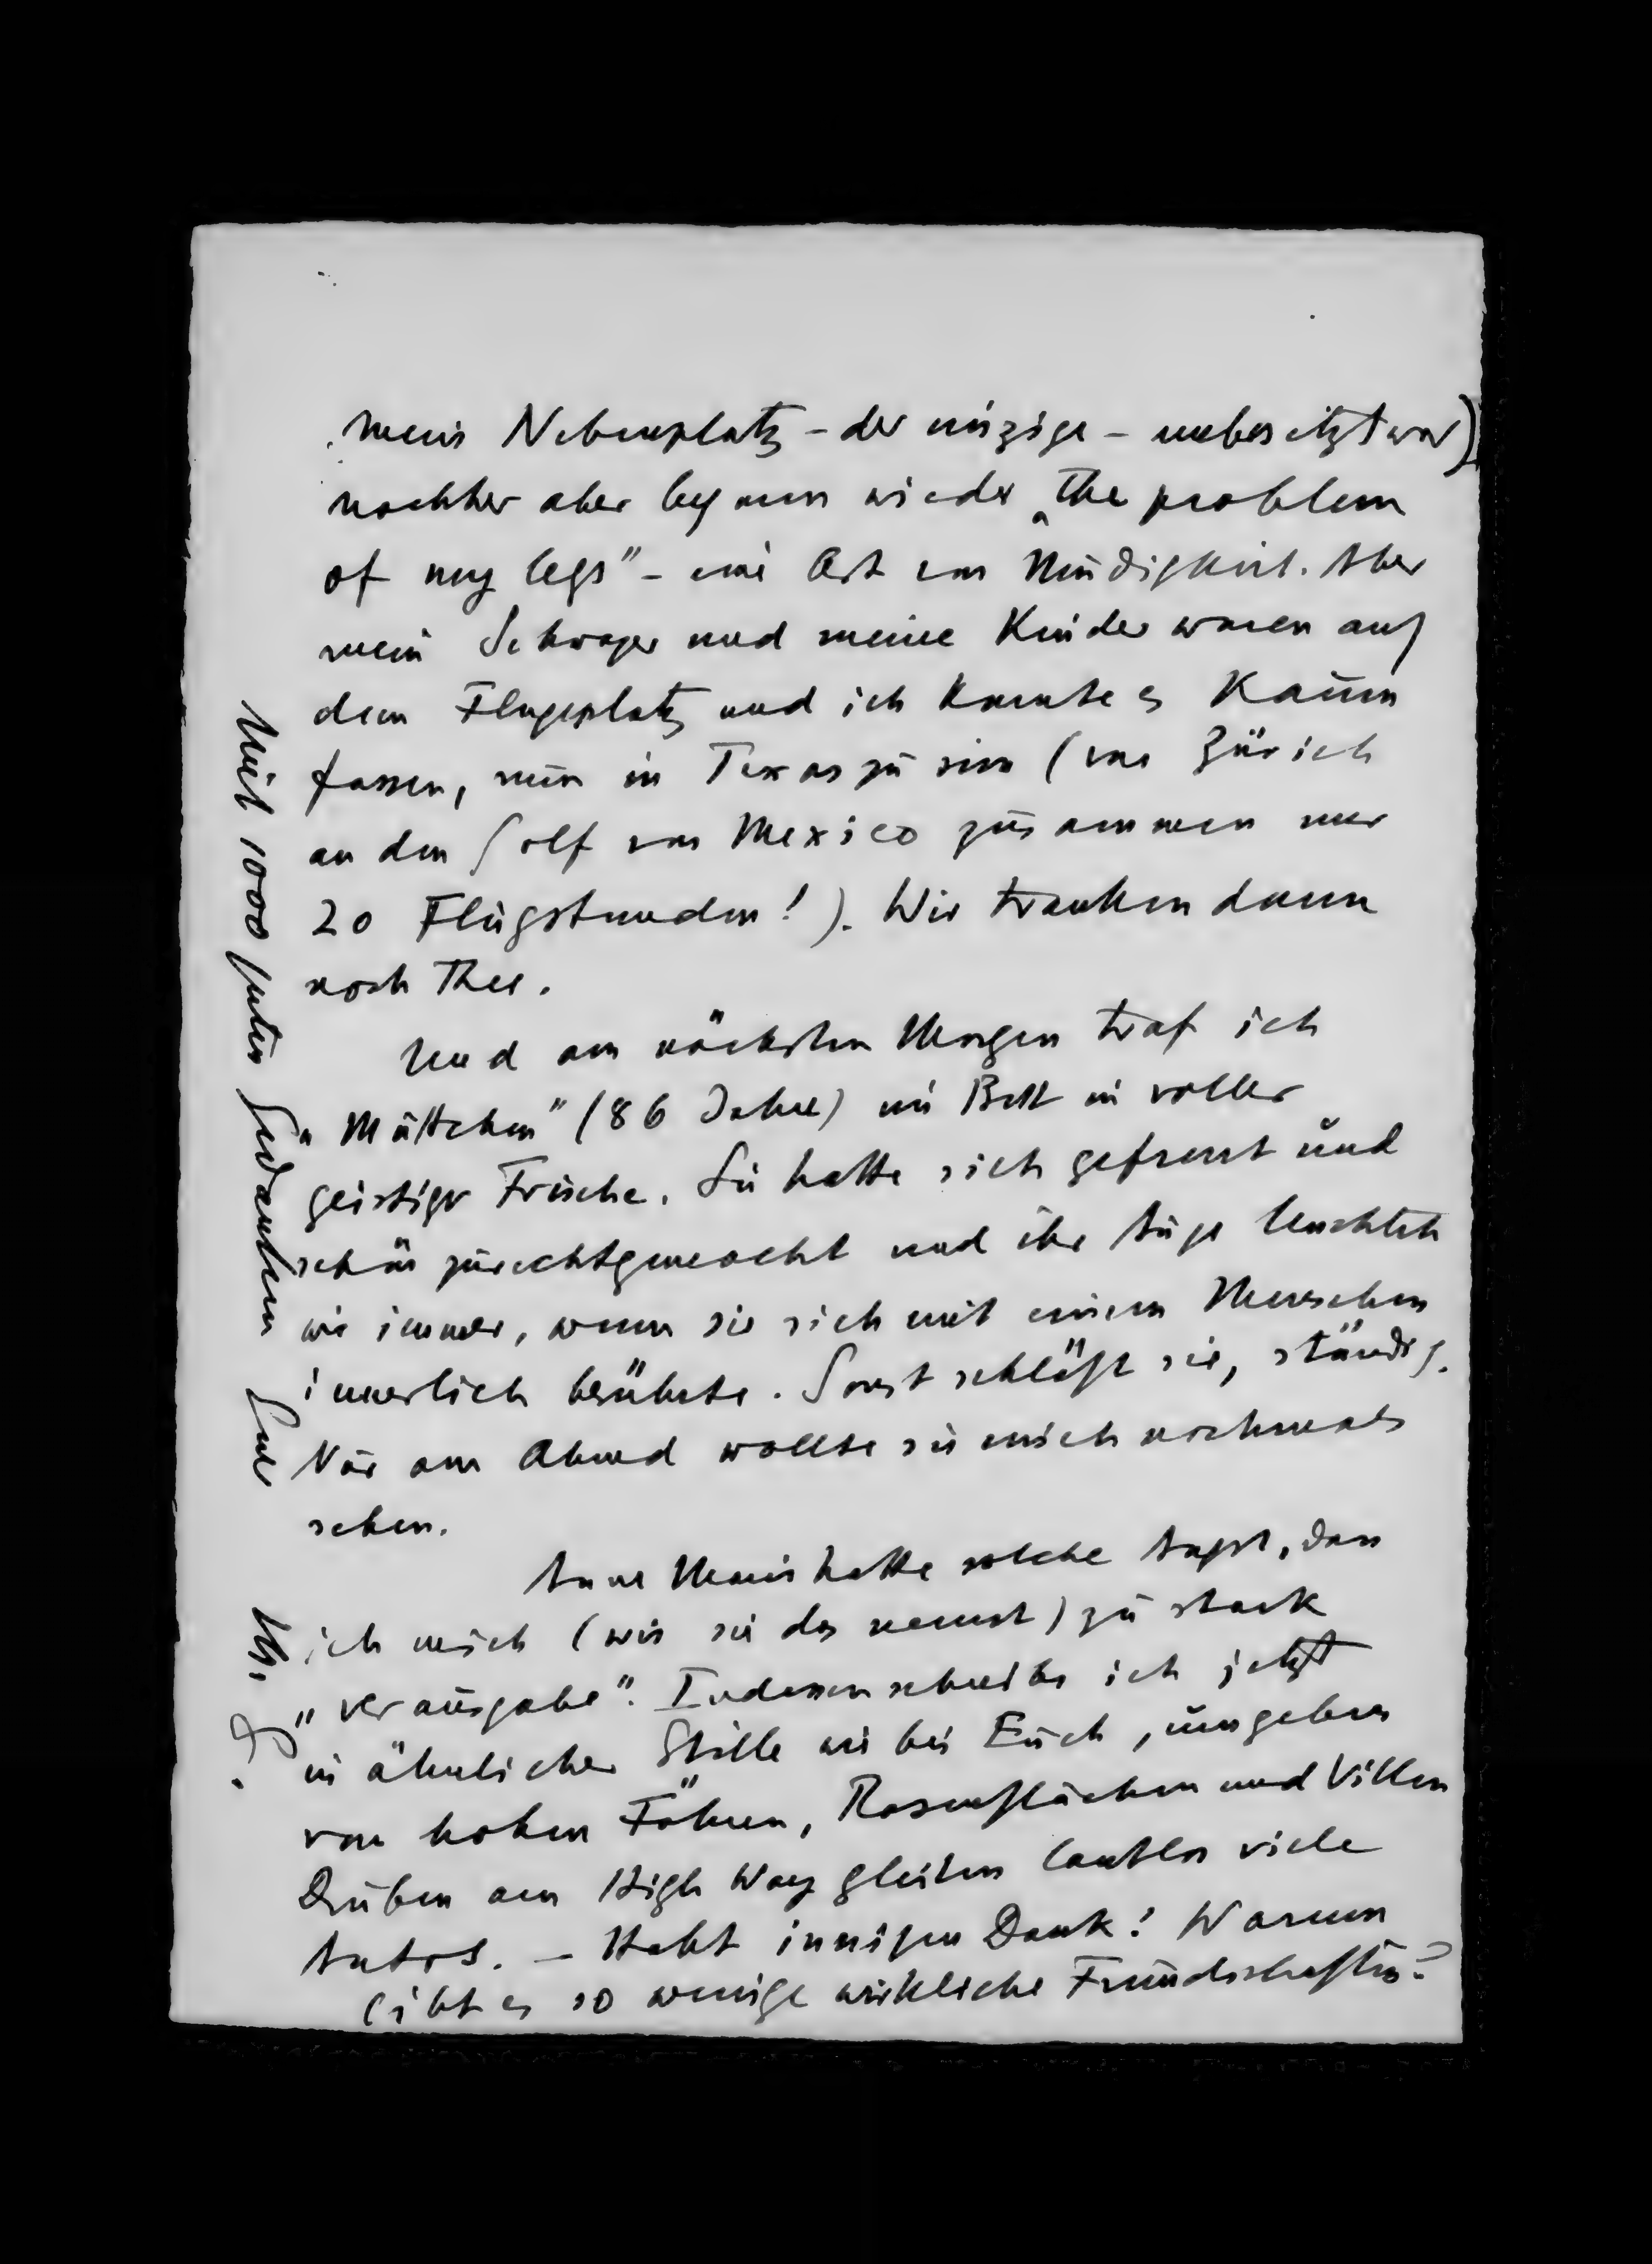 mein Nebenplatz – der einzige – unbesetzt war)
nachher aber begann wieder „the problem
of my legs" – eine Art von Müdigkeit. Aber
mein Schwager und meine Kinder waren auf
dem Flugplatz und ich konnte es kaum
fassen, nun in Texas zu sein (von Zürich
an den Golf von Mexico zusammen nur
20 Flugstunden!). Wir tranken dann
noch Thee.
Und am nächsten Morgen traf ich
„Muttchen" (86 Jahre) im Bett in voller
geistiger Frische. Sie hatte sich gefreut und
schön zurechtgemacht und ihr Auge leuchtete
wie immer, wenn sie sich mit einem Menschen
innerlich berührte. Sonst schläft sie, ständig.
Nur am Abend wollte sie mich nochmals
sehen.
Anne Marie hatte solche Angst, dass
ich mich (wie sie das nennt) zu stark
„verausgabe". Indessen schreibe ich jetzt
in ähnlicher Stille wie bei Euch, umgeben
von hohen Föhren, Rasenflächen und Villen
Drüben am High Way gleiten lautlos viele
Autos. – Habt innigen Dank! Warum
gibt es so wenige wirkliche Freundschaften?
Mit 1000 guten Gedanken Euer